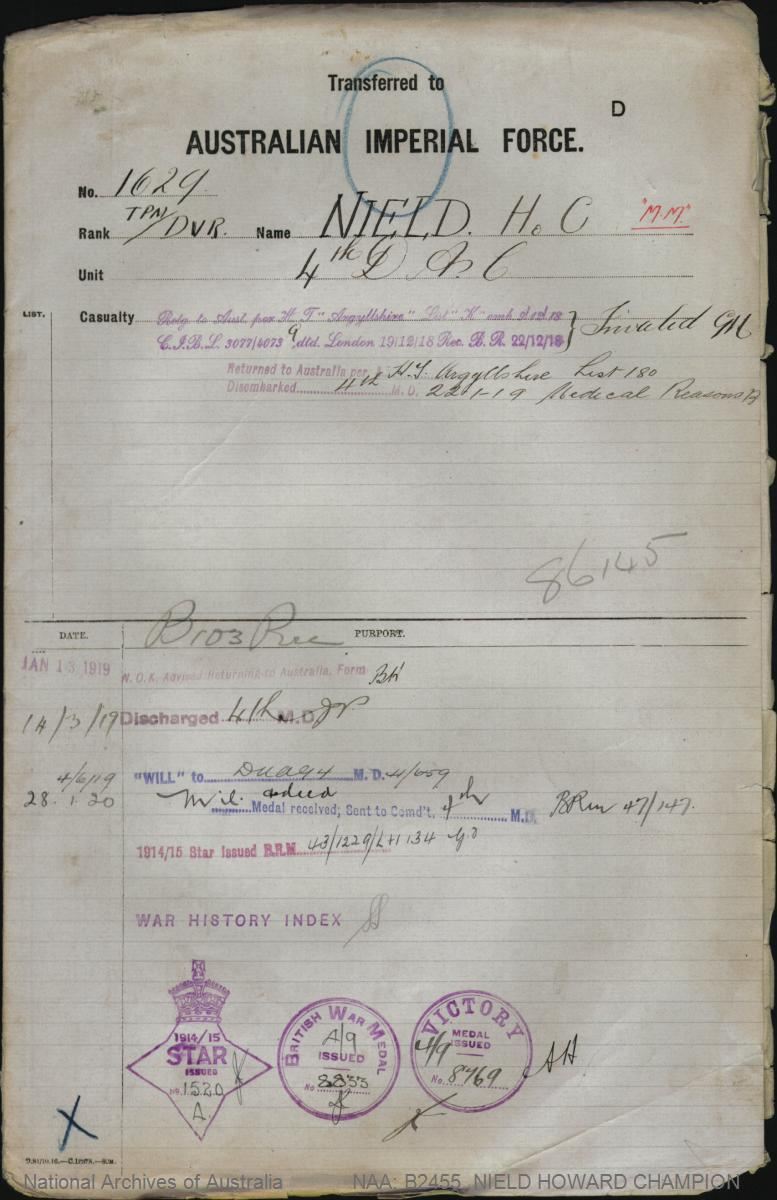 Transferred to
D
AUSTRALIAN IMPERIAL FORCE.
No. 1629
Rank TPR/DVR. Name NIELD. H. C "M.M."
Unit 4th D A C
LIST.
Casualty Retg to Aust. per H T "Argyllshire" List "K" emb
C.I.B.L. 3077/4073 dtd. London 19/12/18 Rec. B. R. 22/12/18 } Invalided
Returned to Australia per H.T. Argyllshire List 180
Disembarked 4th M. D. 22-1-19 Medical Reasons
86145
DATE. PURPORT.
B103 Rec
JAN 13 1919 N.O.K. Advised Returning to Australia. Form
14/3/19 Discharged 4th M.D.
4/6/19 "WILL" to M. D. 4/659
28.1.20 Mil. Medal received; Sent to Comd't. 4th M.D. BRM 47/147.
1914/15 Star issued B.R.M. 43/1229/
WAR HISTORY INDEX
1914/15
STAR
ISSUED
No. 1520
A.
BRITISH WAR MEDAL
A/9
ISSUED
No 8833
VICTORY
MEDAL
ISSUED
4/9
No. 8769
AH
X
National Archives of Australia NAA: B2455, NIELD HOWARD CHAMPION